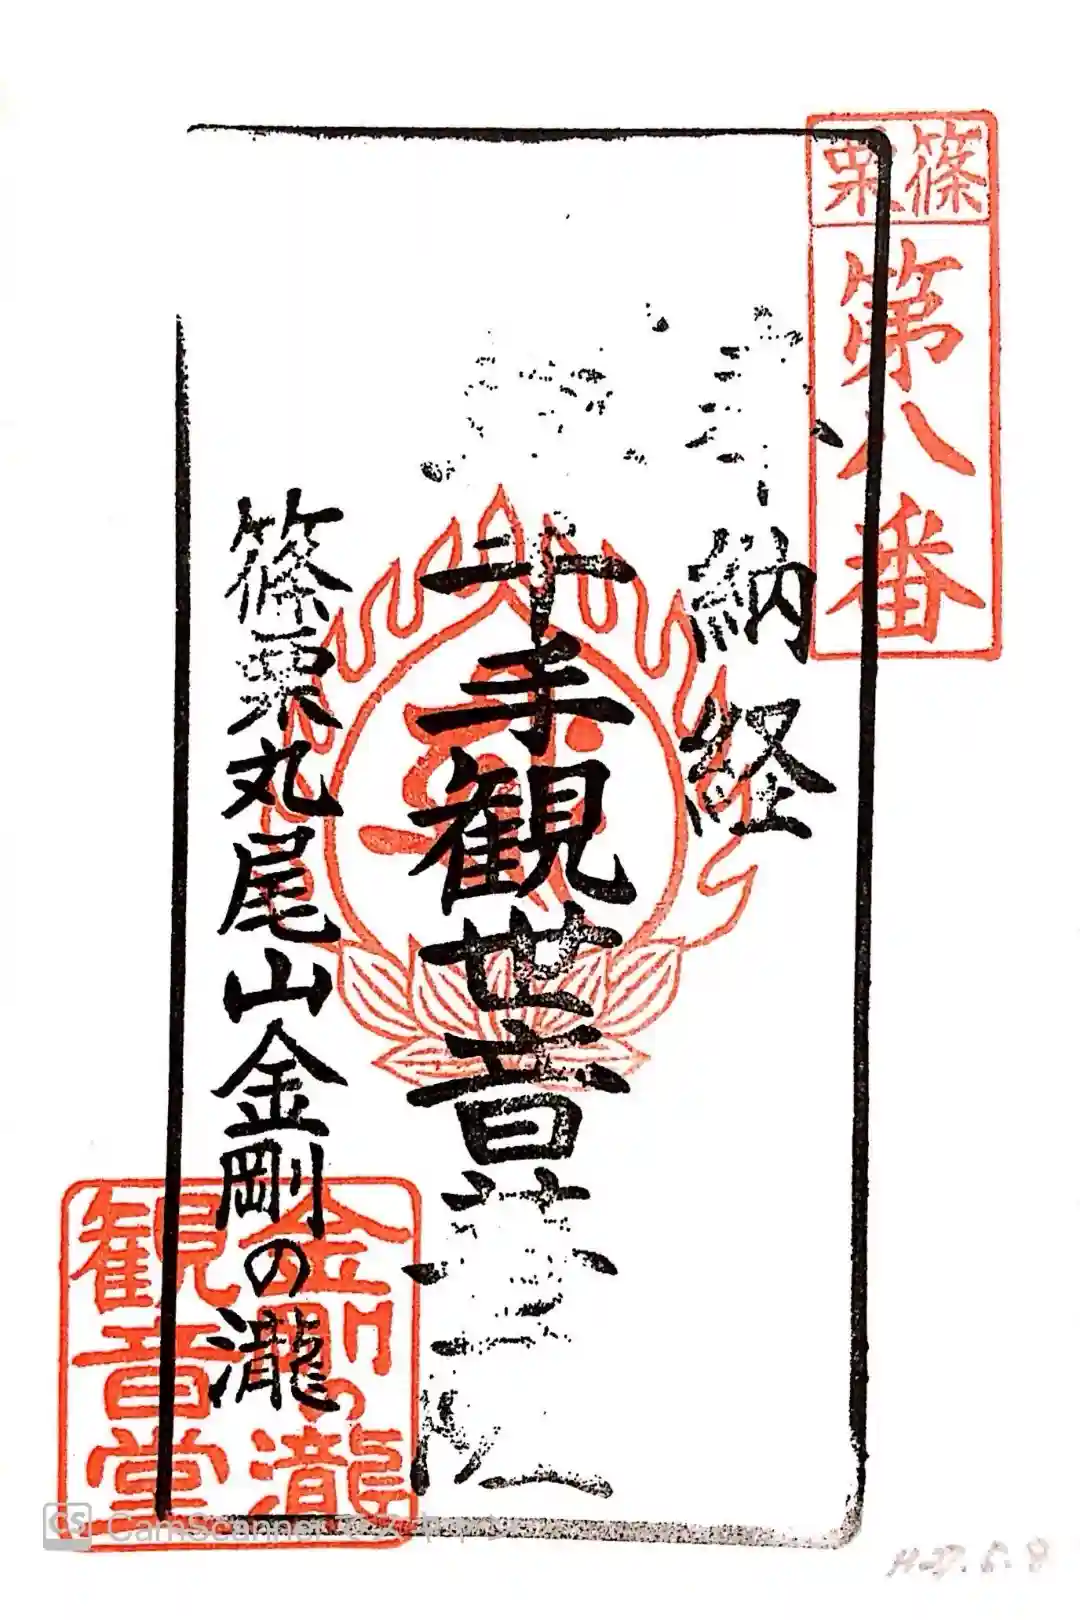 篠栗
第八番
奉納経
千手観世音菩薩
篠栗丸尾山金剛の瀧
金剛の瀧
観音堂
CS CamScanner
H27.5.9